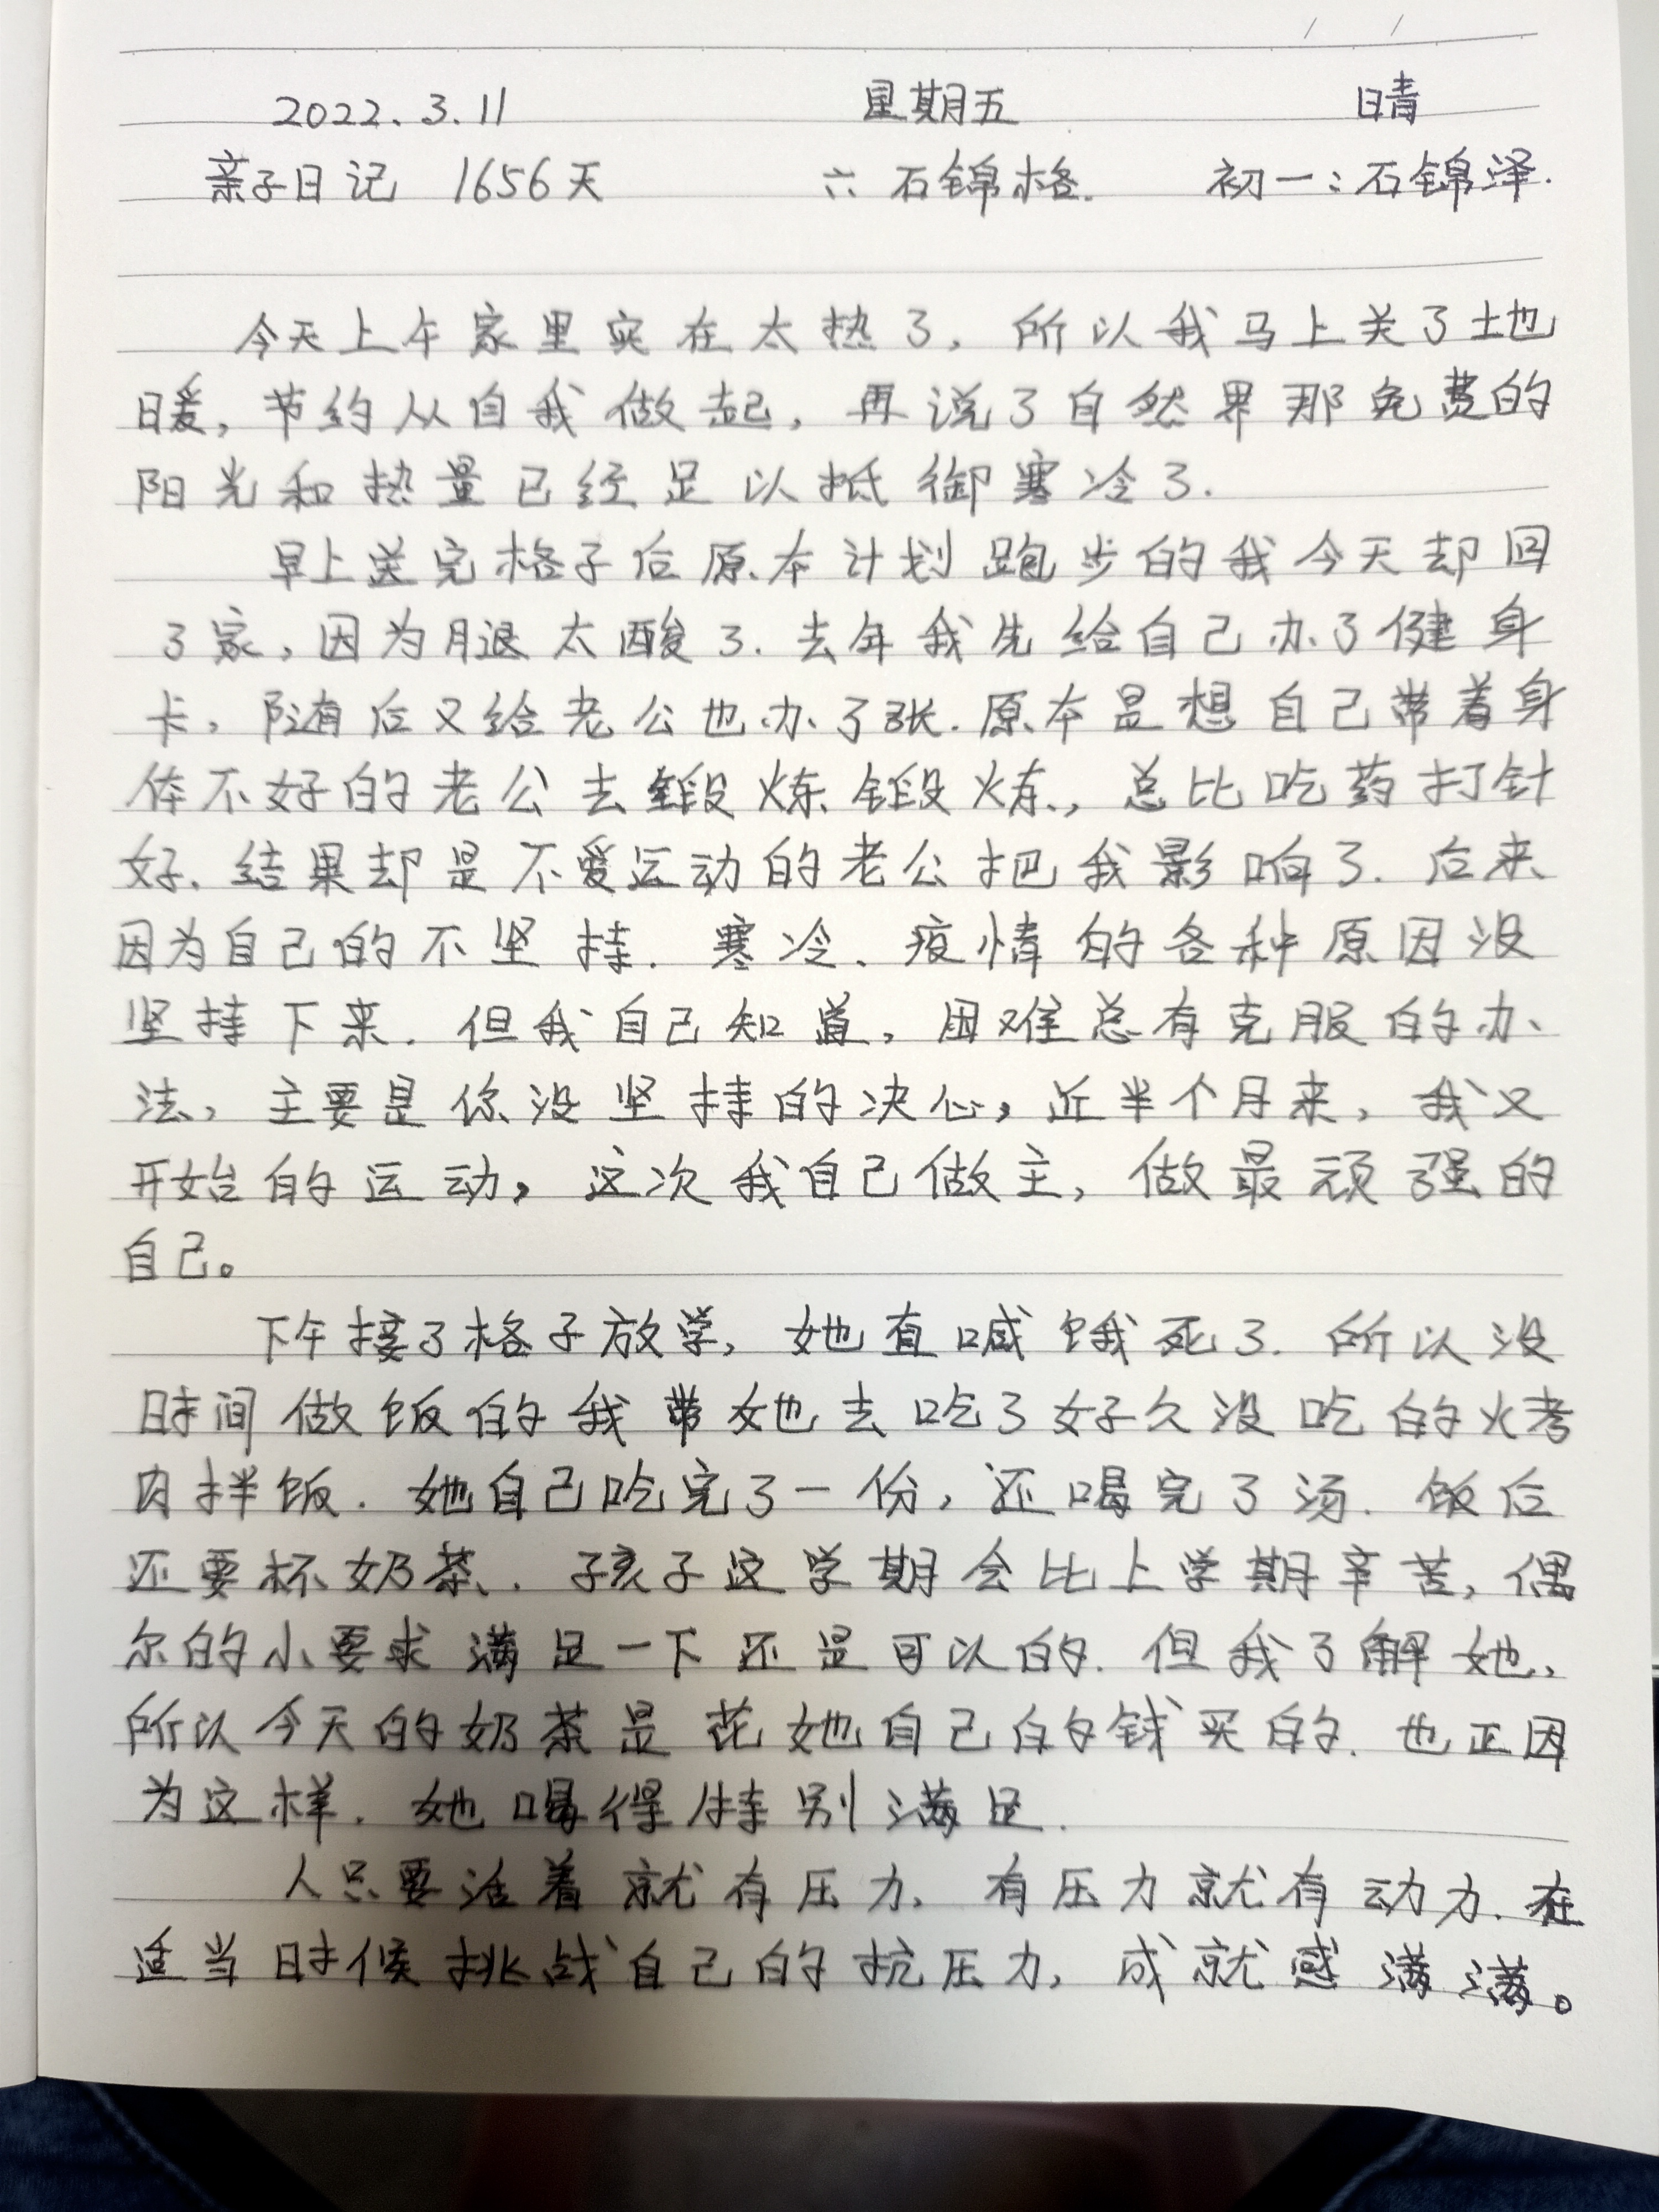 2022.3.11 星期五 晴
亲子日记 1656天 六 石锦格. 初一:石锦泽.
今天上午家里实在太热了,所以我马上关了地
暖,节约从自我做起,再说了自然界那免费的
阳光和热量已经足以抵御寒冷了.
早上送完格子后原本计划跑步的我今天却回
了家,因为腿太酸了.去年我先给自己办了健身
卡,随后又给老公也办了张.原本是想自己带着身
体不好的老公去锻炼锻炼,总比吃药打针
好.结果却是不爱运动的老公把我影响了.后来
因为自己的不坚持.寒冷、疫情的各种原因没
坚持下来.但我自己知道,困难总有克服的办
法,主要是你没坚持的决心,近半个月来,我又
开始的运动,这次我自己做主,做最顽强的
自己。
下午接了格子放学,她直喊饿死了.所以没
时间做饭的我带她去吃了好久没吃的烤
肉拌饭.她自己吃完了一份,还喝完了汤.饭后
还要杯奶茶.孩子这学期会比上学期辛苦,偶
尔的小要求满足一下还是可以的.但我了解她,
所以今天的奶茶是花她自己的钱买的.也正因
为这样.她喝得特别满足.
人只要活着就有压力,有压力就有动力.在
适当时候挑战自己的抗压力,成就感满满。